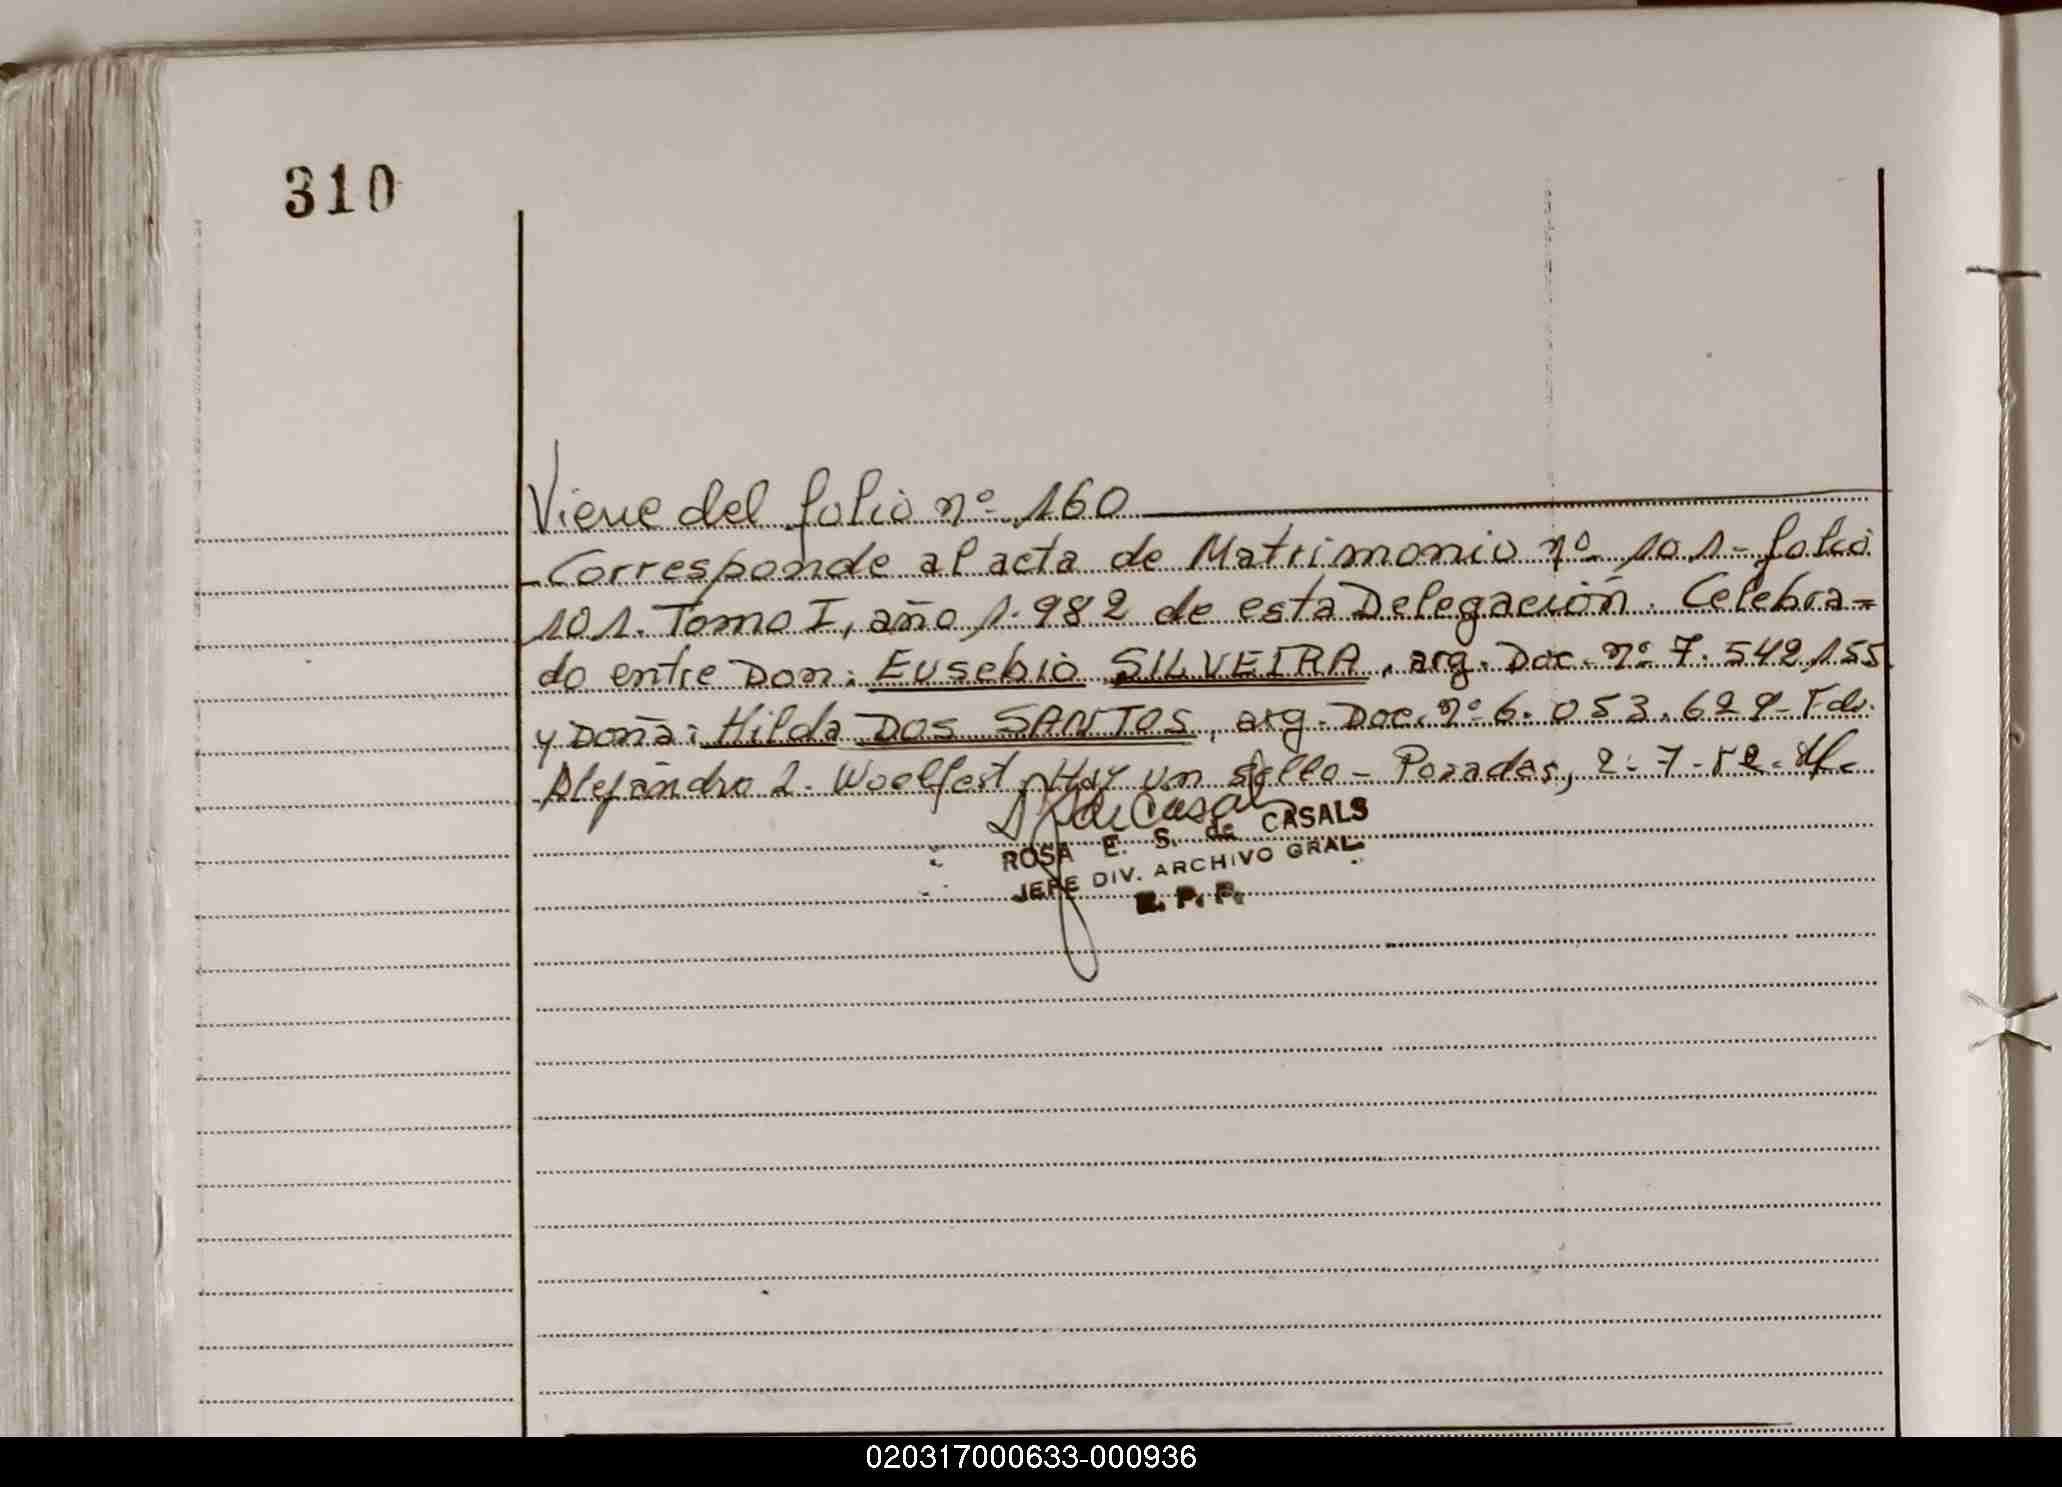 310
Viene del folio nº 160
Corresponde al acta de Matrimonio nº 101- folio
101. Tomo I, año 1.982 de esta Delegación. Celebra=
do entre Don: Eusebio SILVEIRA, arg. Doc. nº 7.542.155
y Doña: Hilda DOS SANTOS, arg. Doc. nº 6.053.629- Fdo.
Alejandro L. Woelfert, Hay un sello - Posadas, 2-7-82.
de Casals
ROSA E. S. de CASALS
JEFE DIV. ARCHIVO GRAL.
R. P. P.
020317000633-000936